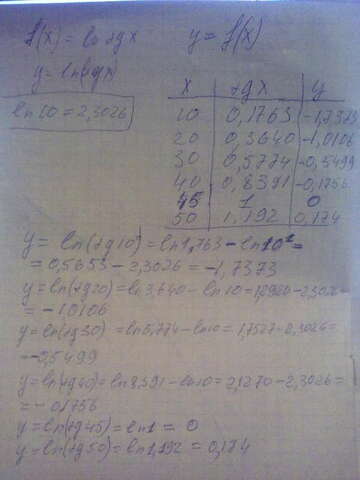 f(x) = ln tgx y = f(x)
y = ln(tgx)
ln10 = 2,3026
x tgx y
10 0,1763 -1,7373
20 0,3640 -1,0106
30 0,5774 -0,5499
40 0,8391 -0,1756
45 1 0
50 1,192 0,174
y = ln(tg10) = ln1,763 - ln10¹ =
= 0,5653 - 2,3026 = -1,7373
y = ln(tg20) = ln3,640 - ln10 = 1,2920 - 2,3026 =
= -1,0106
y = ln(tg30) = ln5,774 - ln10 = 1,7527 - 2,3026 =
-0,5499
y = ln(tg40) = ln8,391 - ln10 = 2,1270 - 2,3026 =
= -0,1756
y = ln(tg45) = ln1 = 0
y = ln(tg50) = ln1,192 = 0,174